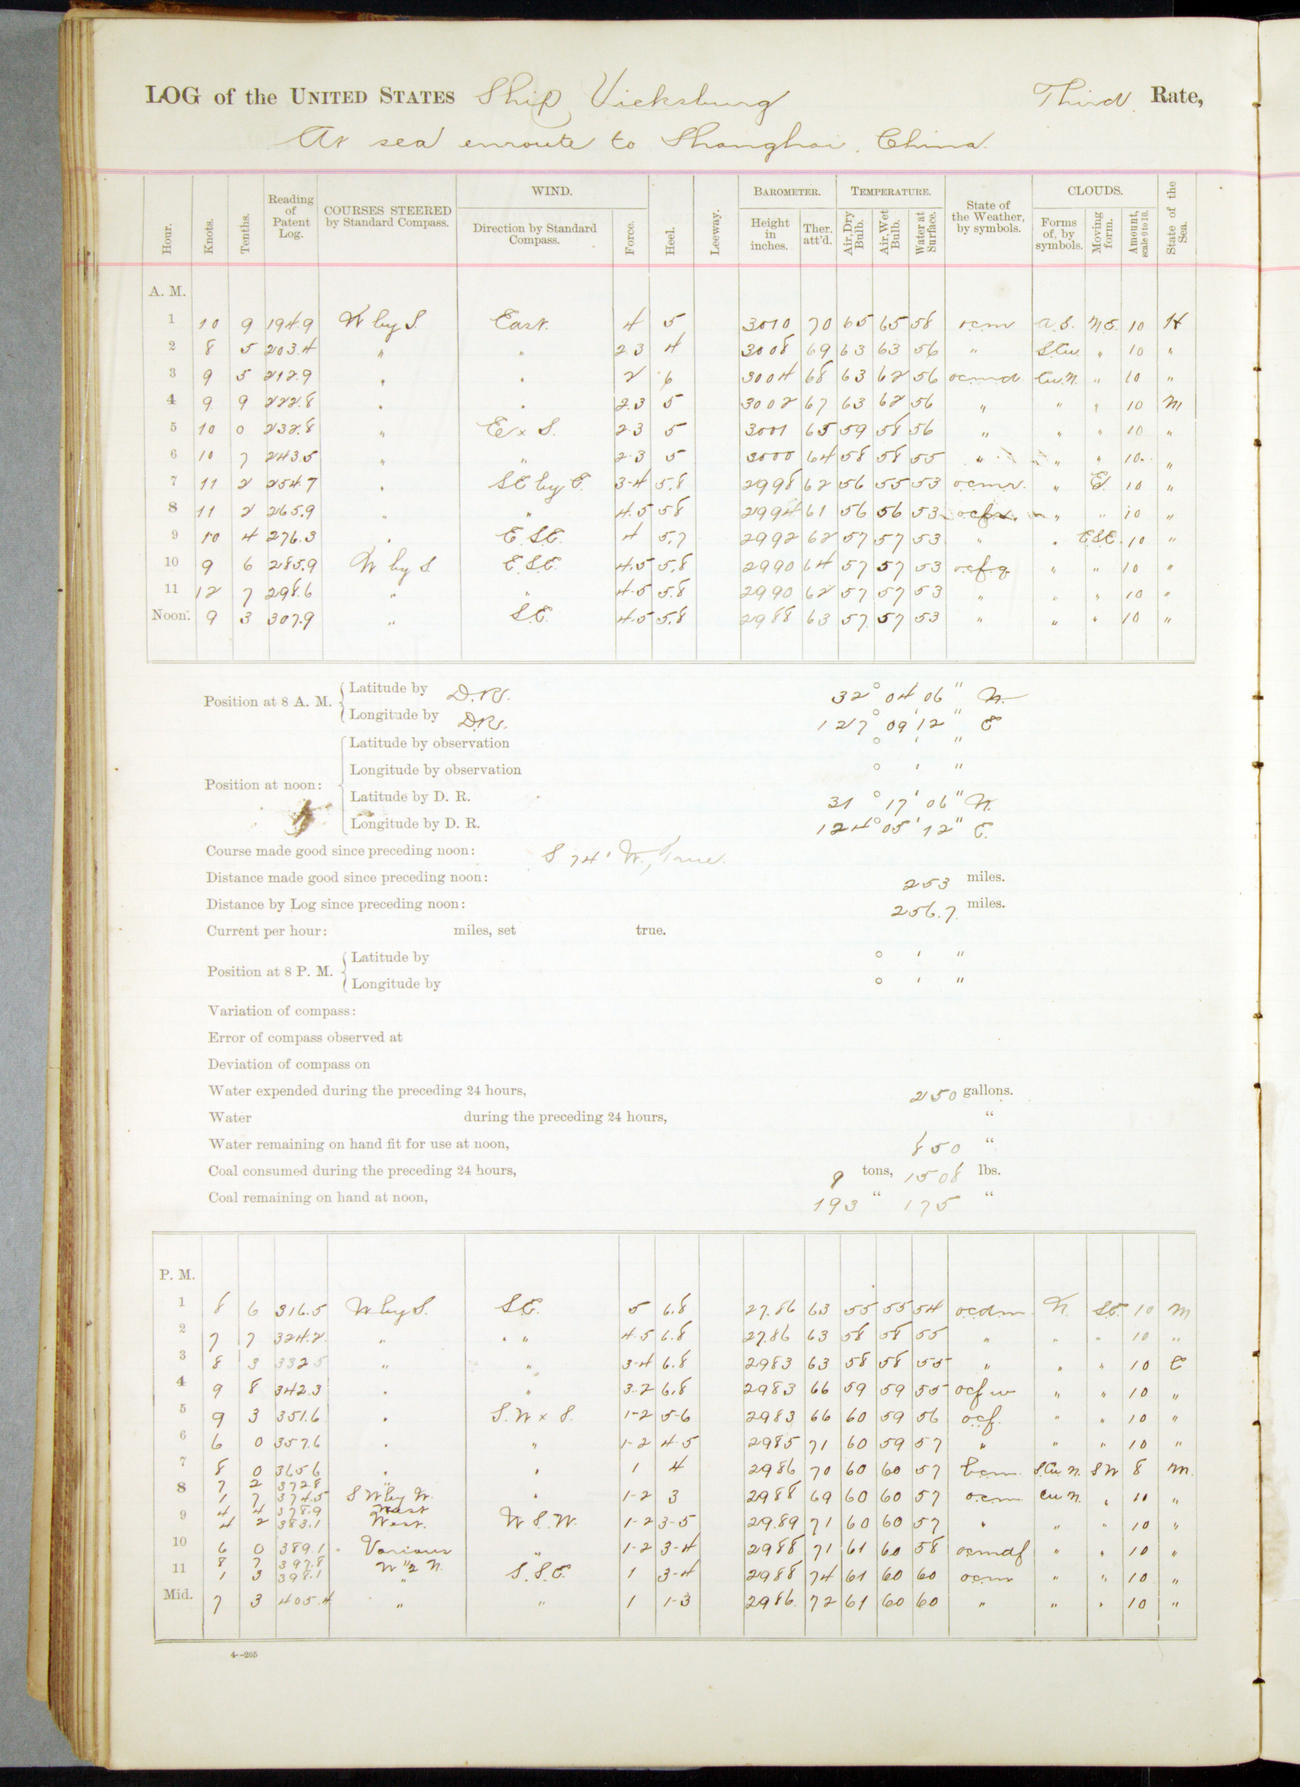 LOG of the UNITED STATES Ship Vicksburg Third Rate,
At sea enroute to Shanghai, China.
Hour. Knots. Tenths. Reading of Patent Log. COURSES STEERED by Standard Compass. WIND. Direction by Standard Compass. Force. Heel. Leeway. BAROMETER. Height in inches. Ther. att'd. TEMPERATURE. Air, Dry Bulb. Air, Wet Bulb. Water at Surface. State of the Weather, by symbols. CLOUDS. Forms of, by symbols. Moving form. Amount, scale 0 to 10. State of the Sea.
A. M.
1 10 9 194.9 W by S. East. 4 5 3010 70 65 65 58 ocm 10
2 8 5 203.4 " " 2.3 4 3008 69 63 63 56 " S.Cu. " 10 "
3 9 5 212.9 " " 2 6 3004 68 63 62 56 ocmd Cu.N. " 10 "
4 9 9 222.8 " " 2.3 5 3002 67 63 62 56 " " " 10 M
5 10 0 232.8 " E x S. 2.3 5 3001 65 59 58 56 " " " 10 "
6 10 7 243.5 " " 2-3 5 3000 64 58 58 55 " " " 10 "
7 11 2 254.7 " SE by E. 3-4 5.8 2998 62 56 55 53 ocmr. " E. 10 "
8 11 2 265.9 " " 4.5 5.8 2994 61 56 56 53 " " 10 "
9 10 4 276.3 " E.S.E. 4 5.7 2992 62 57 57 53 " " E.S.E. 10 "
10 9 6 285.9 W by S E.S.E. 4.5 5.8 2990 64 57 57 53 ocfq " " 10 "
11 12 7 298.6 " " 4-5 5.8 2990 62 57 57 53 " " " 10 "
Noon. 9 3 307.9 " S.E. 4.5 5.8 2988 63 57 57 53 " " " 10 "
Position at 8 A. M. Latitude by D.R. 32° 04' 06" N.
Longitude by D.R. 127° 09' 12" E
Position at noon: Latitude by observation ° ' "
Longitude by observation ° ' "
Latitude by D. R. 31° 17' 06" N.
Longitude by D. R. 124° 05' 12" E.
Course made good since preceding noon: S 74° W., True.
Distance made good since preceding noon: 253 miles.
Distance by Log since preceding noon: 256.7 miles.
Current per hour: miles, set true.
Position at 8 P. M. Latitude by ° ' "
Longitude by ° ' "
Variation of compass:
Error of compass observed at
Deviation of compass on
Water expended during the preceding 24 hours, 250 gallons.
Water during the preceding 24 hours, "
Water remaining on hand fit for use at noon, 850 "
Coal consumed during the preceding 24 hours, 9 tons, 1508 lbs.
Coal remaining on hand at noon, 193 " 175 "
P. M.
1 8 6 316.5 W by S. S.E. 5 6.8 27.86 63 55 55 54 ocdm N. S.E. 10 M
2 7 7 324.2 " " 4-5 6.8 27.86 63 58 58 55 " " " 10 "
3 8 3 332.5 " " 3-4 6.8 2983 63 58 58 55 " " " 10 C
4 9 8 342.3 " " 3-2 6.8 2983 66 59 59 55 ocfw " " 10 "
5 9 3 351.6 " S.W x S. 1-2 5-6 2983 66 60 59 56 ocf. " " 10 "
6 6 0 357.6 " " 1-2 4-5 2985 71 60 59 57 " " " 10 "
7 8 0 365.6 " " 1 4 2986 70 60 60 57 bcm. S.Cu.N. SW 8 M.
7 2 372.8 "
8 1 7 374.5 SW by W. " 1-2 3 2988 69 60 60 57 ocm Cu.N. " 10 "
4 4 378.9 West
9 4 2 383.1 West. W.S.W. 1-2 3-5 29.89 71 60 60 57 " " " 10 "
10 6 0 389.1 Various " 1-2 3-4 2988 71 61 60 58 ocmdf " " 10 "
8 7 397.8 W ½ N.
11 1 3 398.1 " S.S.E. 1 3-4 2988 74 61 60 60 ocm " " 10 "
Mid. 7 3 405.4 " " 1 1-3 2986 72 61 60 60 " " " 10 "
4--205